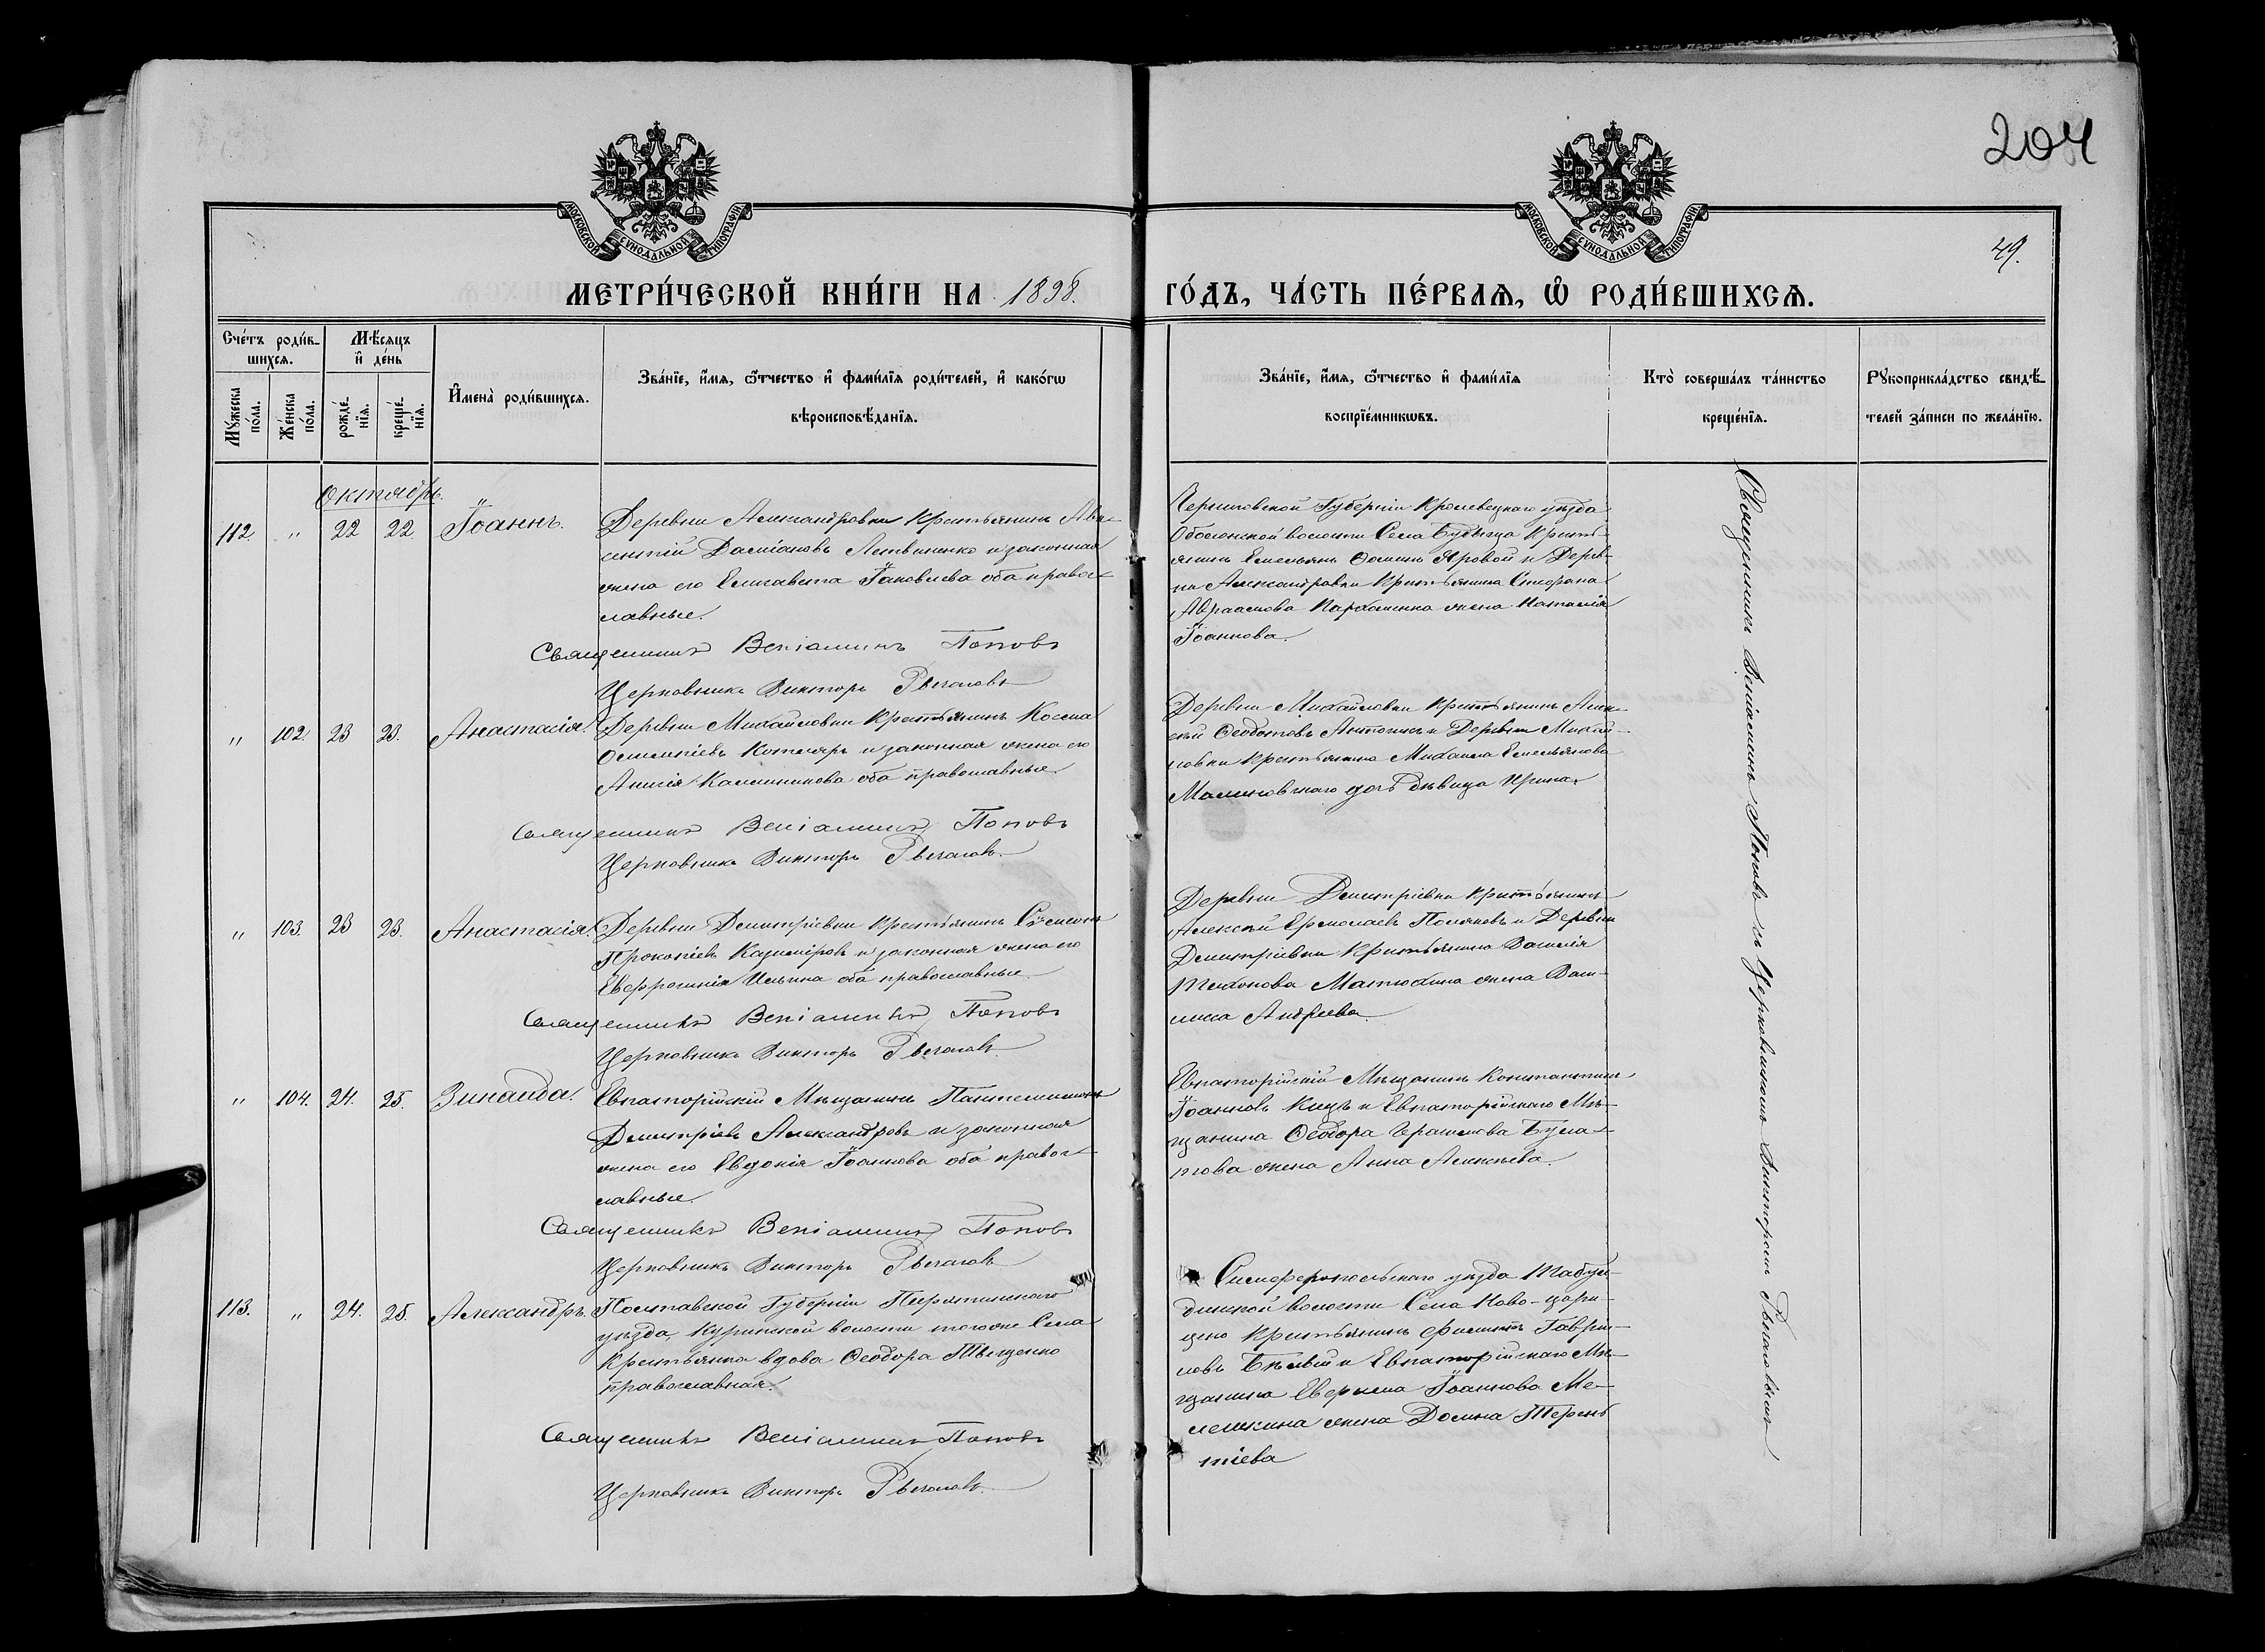 204
49.
МОСКОВСКОЙ СѴНОДАЛЬНОЙ ТИПОГРАФІИ
МОСКОВСКОЙ СѴНОДАЛЬНОЙ ТИПОГРАФІИ
МЕТРИ́ЧЕСКОЙ КНИ́ГИ НА 1898. ГО́ДЪ, ЧА́СТЬ ПЕ́РВАѦ, Ѡ҆ РОДИ́ВШИХСѦ.
Сче́тъ роди́в-
шихсѧ.
Мѣ́сѧцъ
и҆ де́нь
Мꙋ́жеска
по́ла.
Же́нска
по́ла.
рожде́-
нїѧ.
креще́-
нїѧ.
И҆мена̀ роди́вшихсѧ.
Зва́нїе, и҆́мѧ, ѻ҆́тчество и҆ фами́лїѧ роди́телей, и҆ како́гѡ
вѣроисповѣ́данїѧ.
Зва́нїе, и҆́мѧ, ѻ҆́тчество и҆ фами́лїѧ
воспрїе́мникѡвъ.
Кто̀ соверша́лъ та́инство
креще́нїѧ.
Рꙋкоприкла́дство свидѣ́-
телей за́писи по жела́нїю.
Октябрь.
112. " 22 22 Іоаннъ.
Деревни Александровки Крестьянинъ Авк-
сентій Даміановъ Литвиненко и законная
жена его Елисавета Іаковлева оба правос-
лавные.
Священникъ Веніаминъ Поповъ
Церковникъ Викторъ
Черниговской Губерніи Кролевецкаго уѣзда
Обложской волости Села Будища Кресть-
янинъ Емельянъ Фоминъ Яровой и Дерев-
ни Александровки Крестьянина Стефана
Авраамова Пархоменко жена Наталія
Іоаннова.
" 102. 23 23. Анастасія.
Деревни Михайловки Крестьянинъ Косма
Котляръ и законная жена его
Калинникова оба православные.
Священникъ Веніаминъ Поповъ
Церковникъ Викторъ
Деревни Михайловки Крестьянинъ Алек-
сѣй Ѳеодотовъ и Деревни Михай-
ловки Крестьянина Михаила Емельянова
Малиновскаго дочь дѣвица Ирина.
" 103. 23 23. Анастасія.
Деревни Димитріевки Крестьянинъ Сѵмеонъ
Прокопіевъ Казиміровъ и законная жена его
Евфросинія Ильина оба православные.
Священникъ Веніаминъ Поповъ
Церковникъ Викторъ
Деревни Димитріевки Крестьянинъ
Алексѣй Ермолаевъ Поляковъ и Деревни
Димитріевки Крестьянина Василія
Тихонова Матюхина жена Васи-
лиса Андреева.
" 104. 24. 25. Зинаида.
Евпаторійскій Мѣщанинъ Пантелеимонъ
Димитріевъ Александровъ и законная
жена его Евдокія Іоаннова оба правос-
лавные.
Священникъ Веніаминъ Поповъ
Церковникъ Викторъ
Евпаторійскій Мѣщанинъ Константинъ
Іоанновъ и Евпаторійскаго Мѣ-
щанина Ѳеодора Герасимова Була-
това жена Анна Алексѣева.
113. " 24. 25. Александръ.
Полтавской Губерніи Пирятинскаго
уѣзда, Куринской волости того же Села
Крестьянка вдова Ѳеодора Тищенко
православная.
Священникъ Веніаминъ Поповъ
Церковникъ Викторъ
Симферопольскаго уѣзда Табул-
динской волости Села Ново-цари-
цено Крестьянинъ Филиппъ Гаври-
ловъ Бѣлый и Евпаторійскаго Мѣ-
щанина Іоаннова Ме-
лешкина жена Домна Терень-
тіева
Священникъ Веніаминъ Поповъ съ Церковникомъ Викторомъ